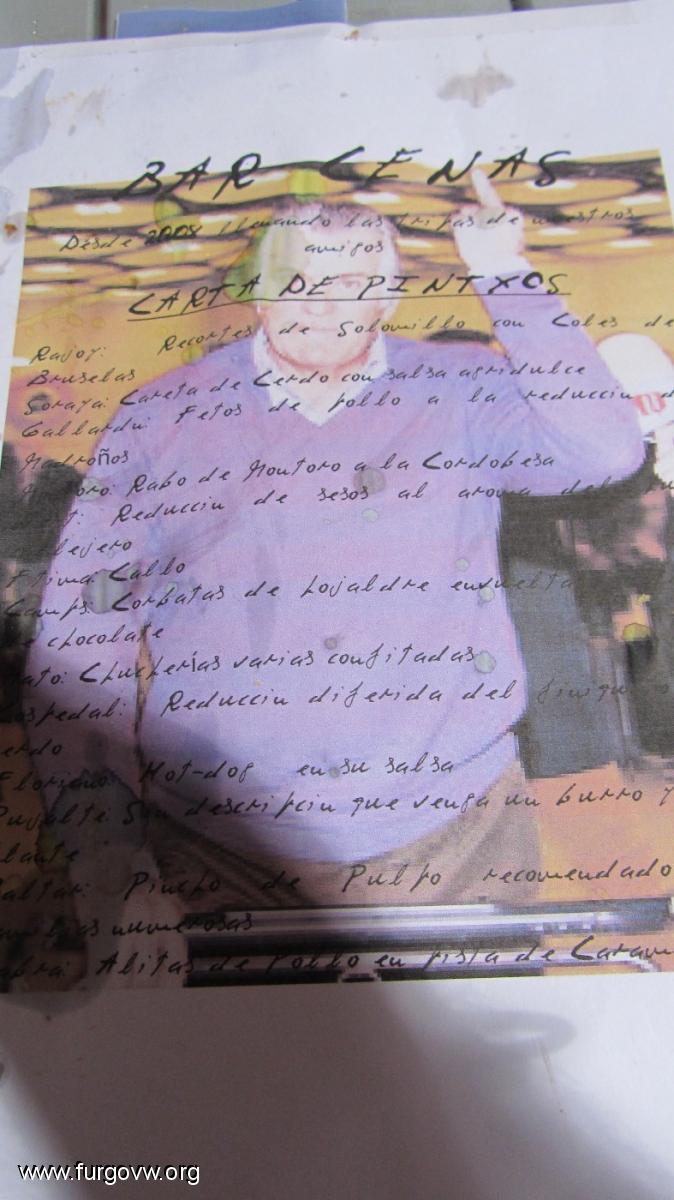 BAR CENAS
Desde 2008 llenando las tripas de nuestros
amigos
CARTA DE PINTXOS
Rajoy: Recortes de Solomillo con Coles de
Bruselas
Soraya: Careta de Cerdo con salsa agridulce
Gallardn: Fetos de pollo a la reduccin d
Madroños
oro: Rabo de Montoro a la Cordobesa
t: Reduccin de sesos al aroma del
llejero
Ftima: Callo
Camps: Corbatas de hojaldre envuelta
chocolate
ato: Chucherías varias confitadas
ospedal: Reduccin diferida del finiqu
erdo
Floriano: Hot-dog en su salsa
Pujalte: Sin descripcin que venga un burro y
lante
altar: Pincho de Pulpo recomendado
numerosas
bra: Alitas de Pollo en pista de Caram
www.furgovw.org